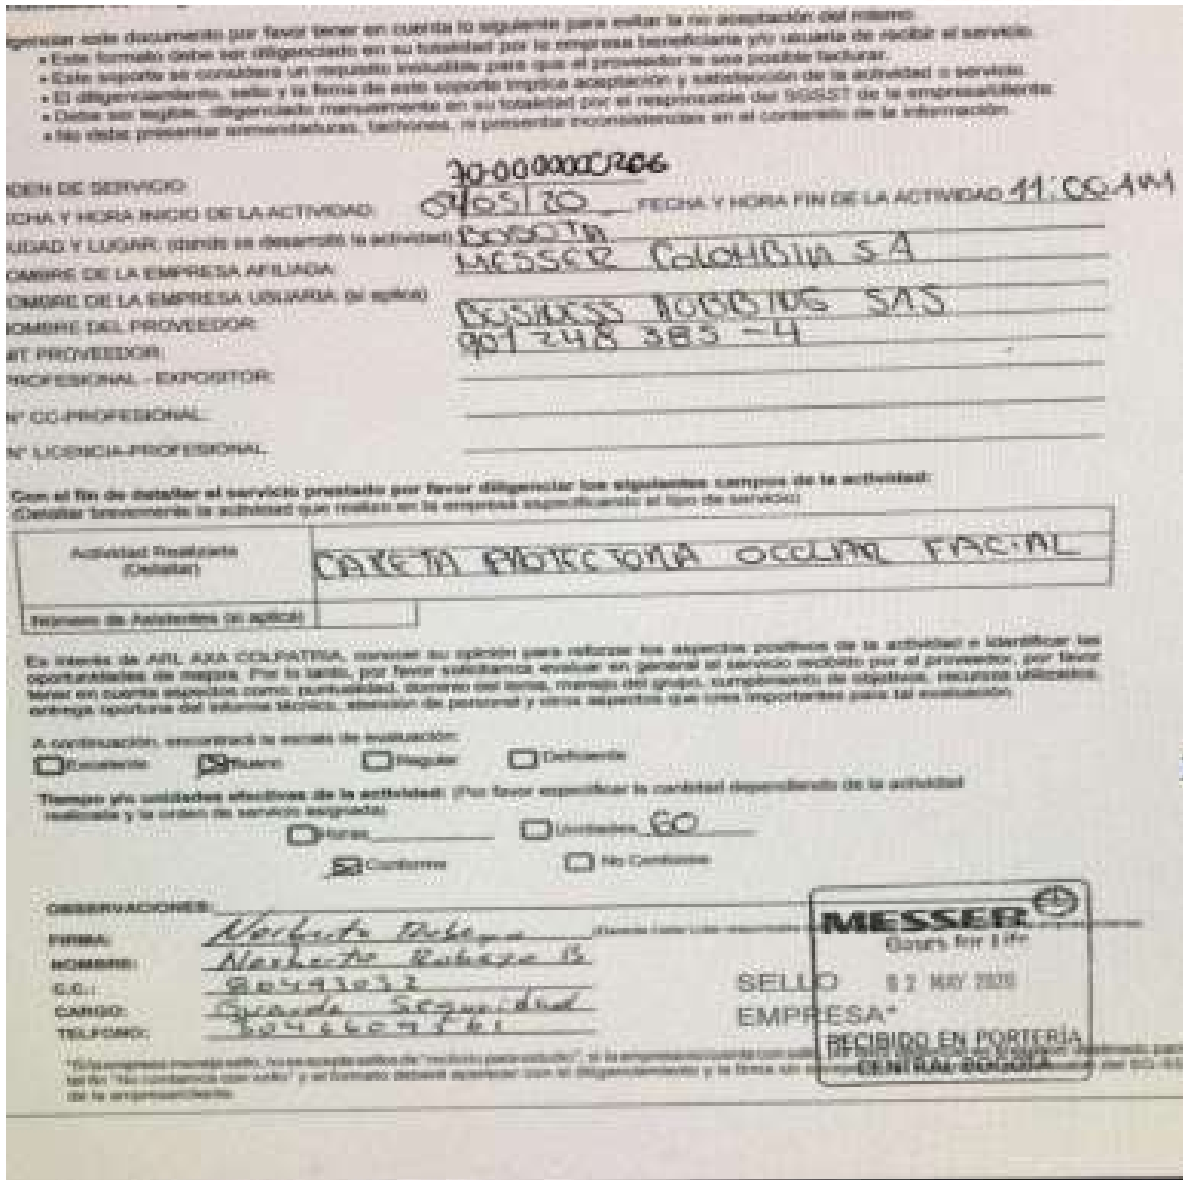 igenciar este documento por favor tener en cuenta lo siguiente para evitar la no aceptación del mismo:
• Este formato debe ser diligenciado en su totalidad por la empresa beneficiaria y/o usuaria de recibir el servicio.
• Este soporte se considera un requisito ineludible para que al proveedor le sea posible facturar.
• El diligenciamiento, sello y la firma de este soporte implica aceptación y satisfacción de la actividad o servicio.
• Debe ser legible, diligenciado manualmente en su totalidad por el responsable del SGSST de la empresa/cliente.
• No debe presentar enmendaduras, tachones, ni presentar inconsistencias en el contenido de la información.
RDEN DE SERVICIO:
ECHA Y HORA INICIO DE LA ACTIVIDAD: 05/20 FECHA Y HORA FIN DE LA ACTIVIDAD 11:00AM
IUDAD Y LUGAR: (donde se desarrolló la actividad) BOGOTA
OMBRE DE LA EMPRESA AFILIADA: MESSER COLOMBIA SA
OMBRE DE LA EMPRESA USUARIA: (si aplica)
OMBRE DEL PROVEEDOR: BUSINESS SAS
IT PROVEEDOR: 901 248 383 - 4
PROFESIONAL - EXPOSITOR:
N° CC-PROFESIONAL:
N° LICENCIA-PROFESIONAL
Con el fin de detallar el servicio prestado por favor diligenciar los siguientes campos de la actividad:
(Detallar brevemente la actividad que realizo en la empresa especificando el tipo de servicio)
Actividad Realizada
(Detallar)
CARETA PROTECTORA OCCULAR FACIAL
Número de Asistentes (si aplica)
Es interés de ARL AXA COLPATRIA, conocer su opinión para reforzar los aspectos positivos de la actividad e identificar las
oportunidades de mejora. Por lo tanto, por favor solicitamos evaluar en general el servicio recibido por el proveedor, por favor
tener en cuenta aspectos como: puntualidad, dominio del tema, manejo del grupo, cumplimiento de objetivos, recursos utilizados,
entrega oportuna del informe técnico, atención de personal y otros aspectos que crea importantes para tal evaluación.
A continuación, encontrará la escala de evaluación:
Excelente Bueno Regular Deficiente
Tiempo y/o unidades efectivas de la actividad: (Por favor especificar la cantidad dependiendo de la actividad
realizada y la orden de servicio asignada)
Horas Unidades 60
Conforme No Conforme
OBSERVACIONES:
FIRMA: Norberto
NOMBRE: Norberto B
C.C.: 80493032
CARGO: Guarda Seguridad
TELEFONO:
MESSER
Gases for Life
02 MAY 2020
RECIBIDO EN PORTERÍA
CENTRAL BOGOTÁ
SELLO
EMPRESA*
de la empresa/cliente